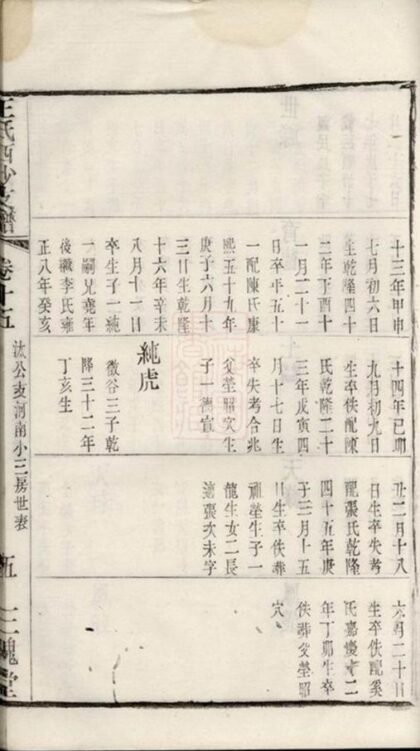 十三年甲申
七月初六日
生乾隆四十
二年丁酉十
一月二十一
日卒年五十
一配陳氏康
熙五十九年
庚子六月十
三日生乾隆
十六年辛未
八月十一日
卒生子一純
一嗣兄堯年
後繼李氏雍
正八年癸亥
十四年己卯
九月初九日
生卒佚配陳
氏乾隆二十
三年戊寅四
月十七日生
卒失考合兆
父塋昭穴生
子一德宣
純虎
微谷三子乾
隆三十二年
丁亥生
丑二月十八
日生卒失考
配張氏乾隆
四十五年庚
子三月十五
日生卒佚葬
祖塋生子一
龍生女二長
適張次未字
六月二十日
生卒佚配奚
氏嘉慶十二
年丁卯生卒
佚葬父塋昭
穴
王氏西沙支譜
卷十五
汝公支河南小三房世表
五
三槐堂